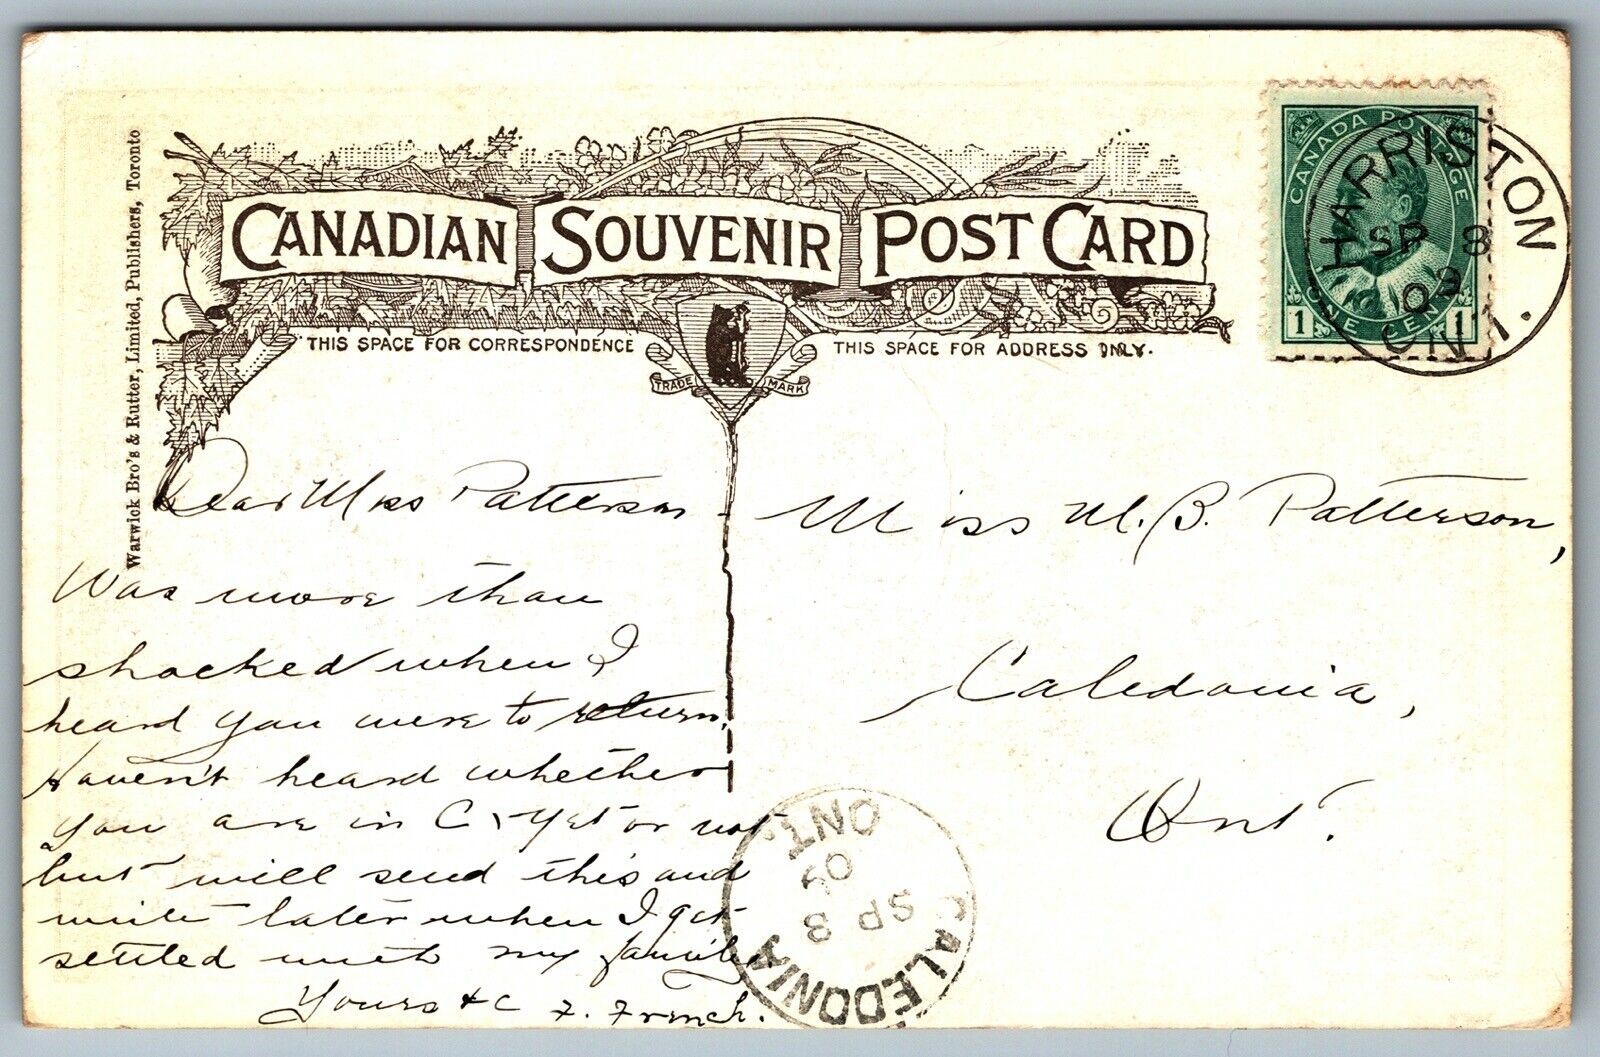 Warwick Bro's & Rutter, Limited, Publishers, Toronto
CANADIAN SOUVENIR POST CARD
THIS SPACE FOR CORRESPONDENCE
THIS SPACE FOR ADDRESS ONLY.
TRADE MARK
CANADA POSTAGE
1 ONE CENT 1
HARRISTON
SP 8
09
ONT.
Dear Miss Patterson -
Was more than
shocked when I
heard you were to return.
Haven't heard whether
you are in C - yet or not
but will send this and
write later when I get
settled with my family
Yours &c F. French.
Miss M. B. Patterson,
Caledonia,
Ont.
CALEDONIA
SP 8
09
ONT.